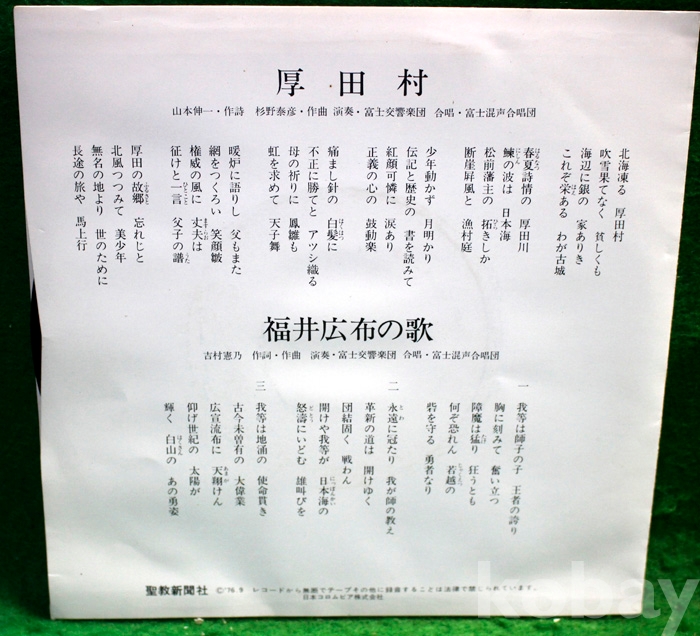 厚田村
山本伸一・作詩 杉野泰彦・作曲 演奏・富士交響楽団 合唱・富士混声合唱団
北海凍る 厚田村
吹雪果てなく 貧しくも
海辺に銀の 家ありき
これぞ栄ある わが古城
春夏詩情の 厚田川
鰊の波は 日本海
松前藩主の 拓きしか
断崖屏風と 漁村庭
少年動かず 月明かり
伝記と歴史の 書を読みて
紅顔可憐に 涙あり
正義の心の 鼓動楽
痛まし針の 白髪に
不正に勝てと アツシ織る
母の祈りに 鳳雛も
虹を求めて 天子舞
暖炉に語りし 父もまた
網をつくろい 笑顔皺
権威の風に 丈夫は
征けと一言 父子の譜
厚田の故郷 忘れじと
北風つつみて 美少年
無名の地より 世のために
長途の旅や 馬上行
福井広布の歌
吉村憲乃 作詞・作曲 演奏・富士交響楽団 合唱・富士混声合唱団
一 我等は師子の子 王者の誇り
胸に刻みて 奮い立つ
障魔は猛り 狂うとも
何ぞ恐れん 若越の
砦を守る 勇者なり
二 永遠に冠たり 我が師の教え
革新の道は 開けゆく
団結固く 戦わん
開けや我等が 日本海の
怒濤にいどむ 雄叫びを
三 我等は地涌の 使命貫き
古今未曽有の 大偉業
広宣流布に 天翔けん
仰げ世紀の 太陽が
輝く 白山の あの勇姿
聖教新聞社 Ⓒ'76.9 レコードから無断でテープその他に録音することは法律で禁じられています。
日本コロムビア株式会社
kobay